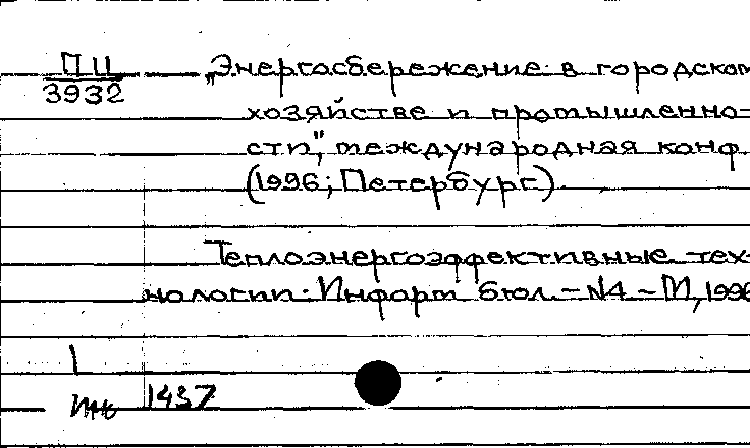 П II
3932
„Энергосбережение в городском
хозяйстве и промышленно-
сти", международная конф.
(1996; Петербург).
Теплоэнергоэффективные тех-
нологии: Информ бюл. – N4 – М, 1996
1
Инв 1437